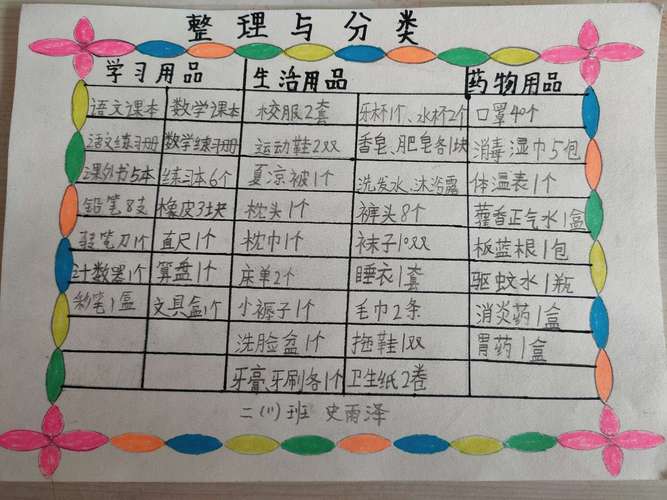 整理与分类
学习用品 生活用品 药物用品
语文课本 数学课本 校服2套 牙杯1个、水杯2个 口罩40个
语文练习册 数学练习册 运动鞋2双 香皂、肥皂各1块 消毒湿巾5包
课外书5本 练习本6个 夏凉被1个 洗发水、沐浴露 体温表1个
铅笔8支 橡皮3块 枕头1个 裤头8个 藿香正气水1盒
铅笔刀1个 直尺1个 枕巾1个 袜子10双 板蓝根1包
计数器1个 算盘1个 床单2个 睡衣1套 驱蚊水1瓶
彩笔1盒 文具盒1个 小褥子1个 毛巾2条 消炎药1盒
洗脸盆1个 拖鞋1双 胃药1盒
牙膏、牙刷各1个 卫生纸2卷
二(1)班 史雨泽